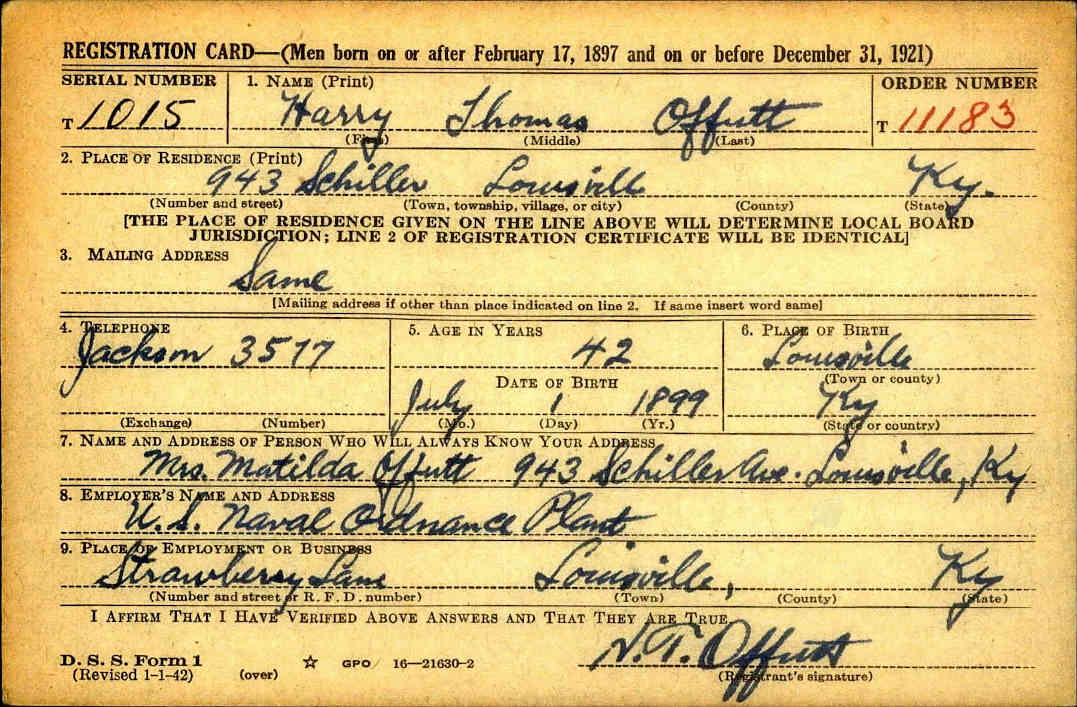 REGISTRATION CARD—(Men born on or after February 17, 1897 and on or before December 31, 1921)
SERIAL NUMBER 1. NAME (Print) ORDER NUMBER
T 1015 Harry Thomas Offutt T 11183
(First) (Middle) (Last)
2. PLACE OF RESIDENCE (Print)
943 Schiller Louisville Ky.
(Number and street) (Town, township, village, or city) (County) (State)
[THE PLACE OF RESIDENCE GIVEN ON THE LINE ABOVE WILL DETERMINE LOCAL BOARD
JURISDICTION; LINE 2 OF REGISTRATION CERTIFICATE WILL BE IDENTICAL]
3. MAILING ADDRESS
Same
[Mailing address if other than place indicated on line 2. If same insert word same]
4. TELEPHONE 5. AGE IN YEARS 6. PLACE OF BIRTH
Jackson 3577 42 Louisville
DATE OF BIRTH (Town or county)
July 1 1899 Ky
(Exchange) (Number) (Mo.) (Day) (Yr.) (State or country)
7. NAME AND ADDRESS OF PERSON WHO WILL ALWAYS KNOW YOUR ADDRESS
Mrs. Matilda Offutt 943 Schiller Ave. Louisville, Ky
8. EMPLOYER'S NAME AND ADDRESS
U.S. Naval Ordnance Plant
9. PLACE OF EMPLOYMENT OR BUSINESS
Strawberry Lane Louisville, Ky
(Number and street or R. F. D. number) (Town) (County) (State)
I AFFIRM THAT I HAVE VERIFIED ABOVE ANSWERS AND THAT THEY ARE TRUE.
H.T. Offutt
D. S. S. Form 1 ☆ GPO 16—21630-2
(Revised 1-1-42) (over) (Registrant's signature)